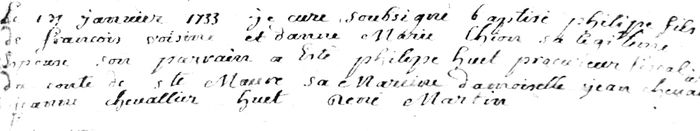 Le 17 janvier 1733 je curé soubsigné baptisé philipe fils
de francois voisine et danne Marie Chion sa legitime
epouse son parvain a esté philipe huet procureur fiscal
du conté de ste Maure sa Marine damoiselle jean cheva
jeanne chevallier huet René Martin